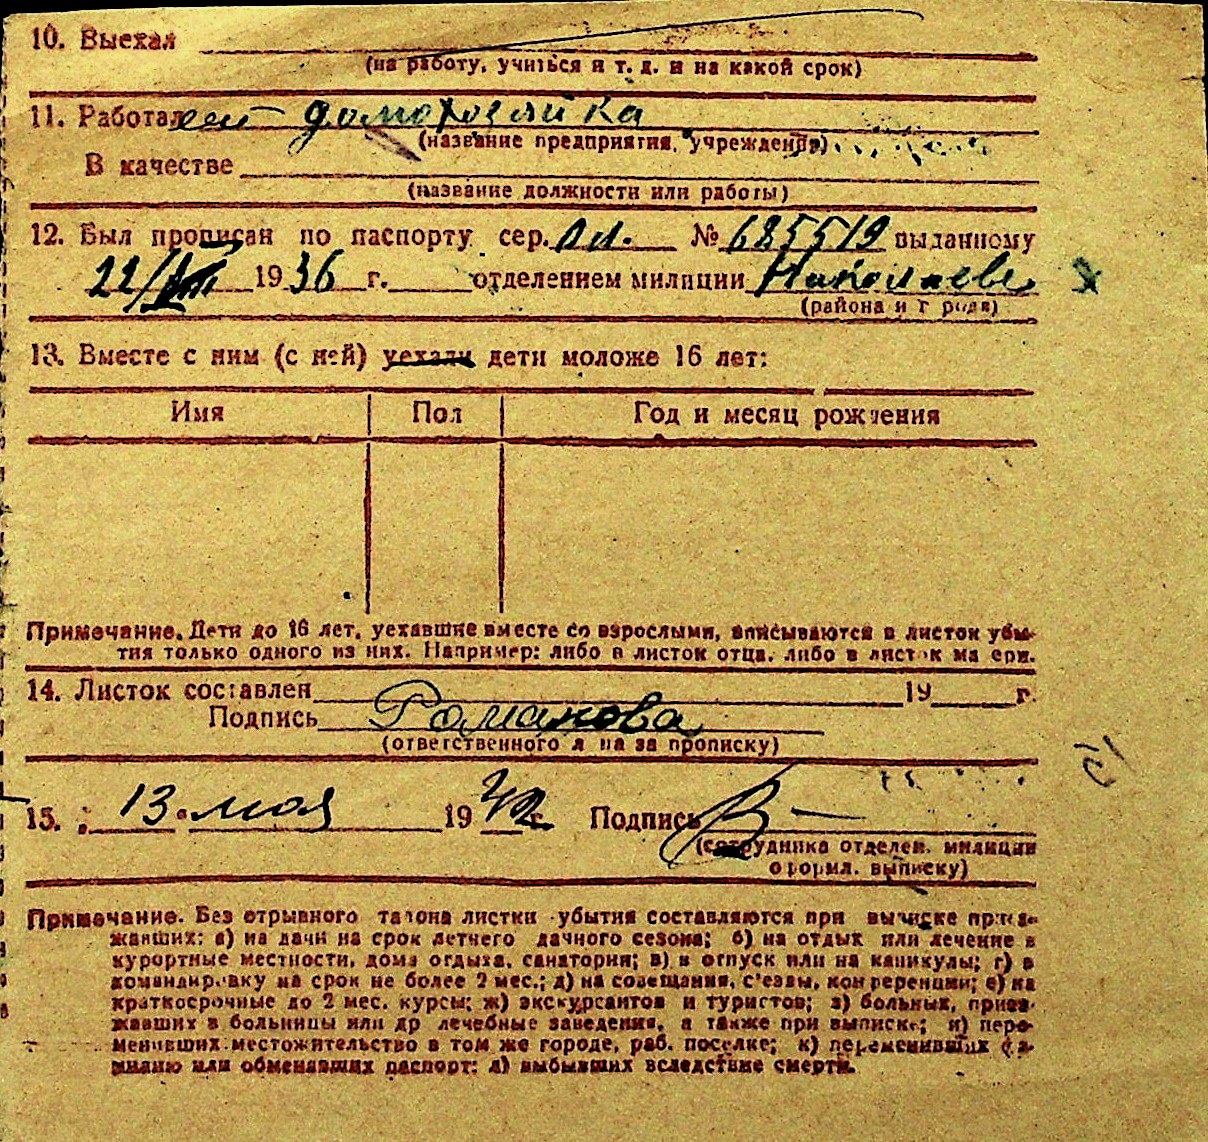 10. Выехал
(на работу, учиться и т. д. и на какой срок)
11. Работал домохозяйка
(название предприятия, учреждения)
В качестве
(название должности или работы)
12. Был прописан по паспорту сер. № 685519 выданному
22/VIII 1936 г. отделением милиции Николаев
(района и города)
13. Вместе с ним (с ней) уехали дети моложе 16 лет:
Имя Пол Год и месяц рождения
Примечание. Дети до 16 лет, уехавшие вместе со взрослыми, вписываются в листок убы-
тия только одного из них. Например: либо в листок отца, либо в листок матери.
14. Листок составлен 19 г.
Подпись Романова
(ответственного лица за прописку)
15. "13" мая 1942 г. Подпись
(сотрудника отделен. милиции
оформл. выписку)
Примечание. Без отрывного талона листки убытия составляются при выписке приез-
жавших: а) на дачи на срок летнего дачного сезона; б) на отдых или лечение в
курортные местности, дома отдыха, санатории; в) в отпуск или на каникулы; г) в
командировку на срок не более 2 мес.; д) на совещания, с'езды, конференции; е) на
краткосрочные до 2 мес. курсы; ж) экскурсантов и туристов; з) больных, приез-
жавших в больницы или др лечебные заведения, а также при выписке; и) пере-
менивших местожительство в том же городе, раб. поселке; к) переменивших фа-
милию или обменявших паспорт; л) выбывших вследствие смерти.